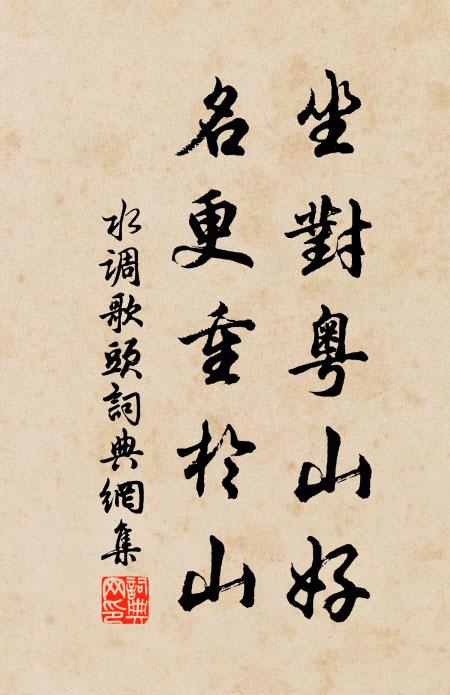 坐對粤山好
名更重於山
水調歌頭詞典網集
詞典網印